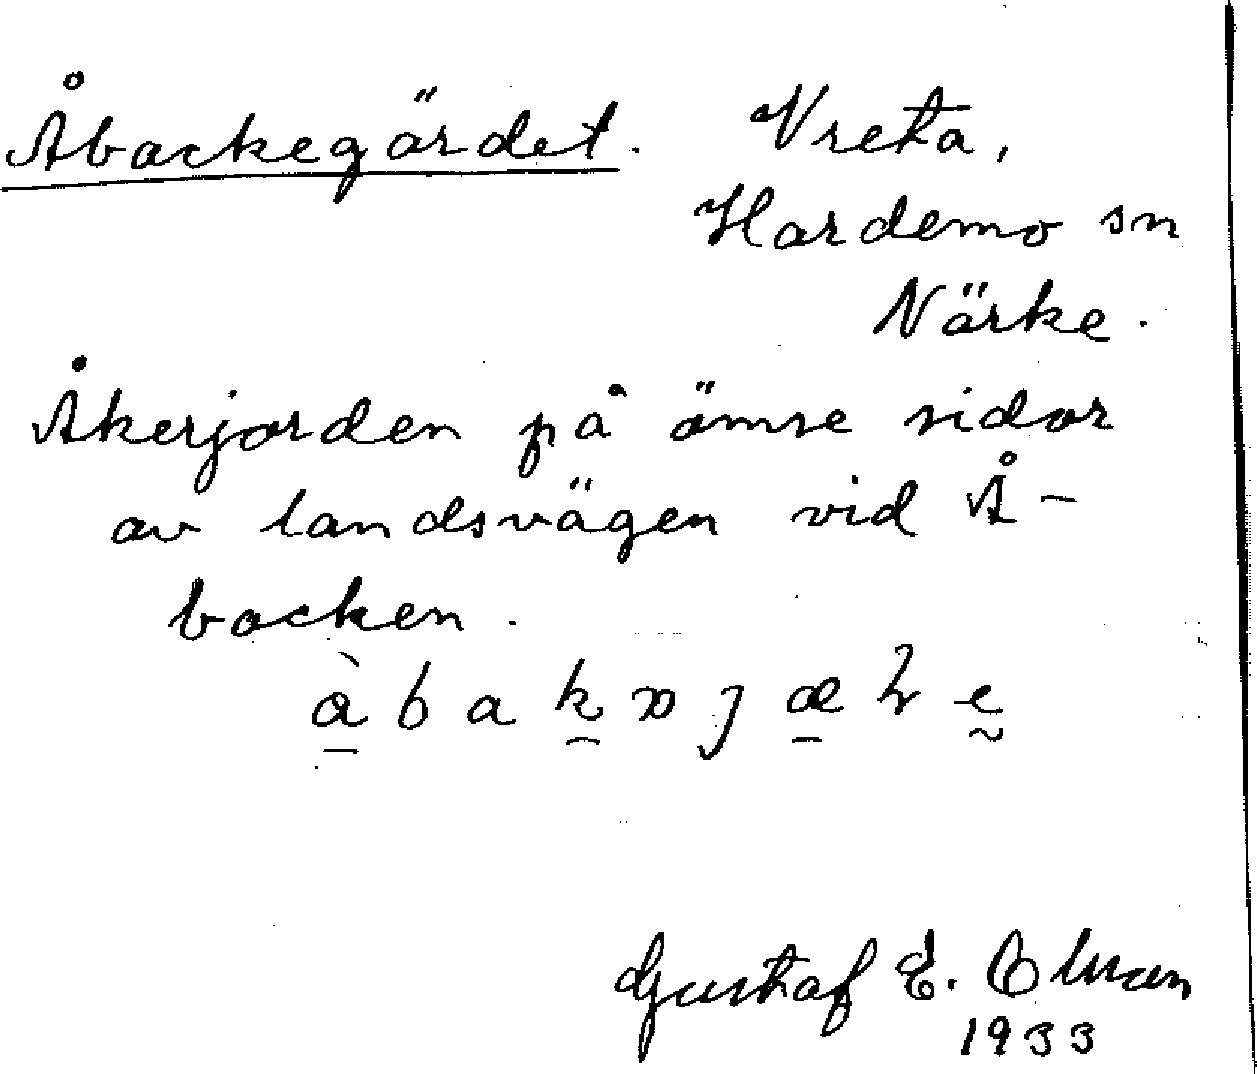 Åbackegärdet. Vreta,
Hardemo sn
Närke.
Åkerjorden på ömse sidor
av landsvägen vid Å-
backen.
Gustaf E.
1933